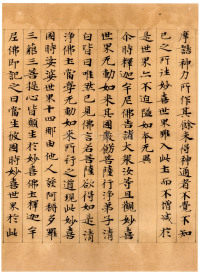 摩詰神力所作其餘未得神通者不覺不知
己之所往妙喜世界雖入此土而不增減於
是世界亦不迫隘如本無異
尒時釋迦牟尼佛告諸大衆汝等且觀妙喜
世界無動如來其國嚴飾菩薩行淨弟子清
白皆曰唯然已見佛言若菩薩欲得如是清
淨佛土當學無動如來所行之道現此妙喜
國時娑婆世界十四那由他人發阿耨多羅
三藐三菩提心皆願生於妙喜佛土釋迦牟
尼佛即記之曰當生彼國時妙喜世界於此